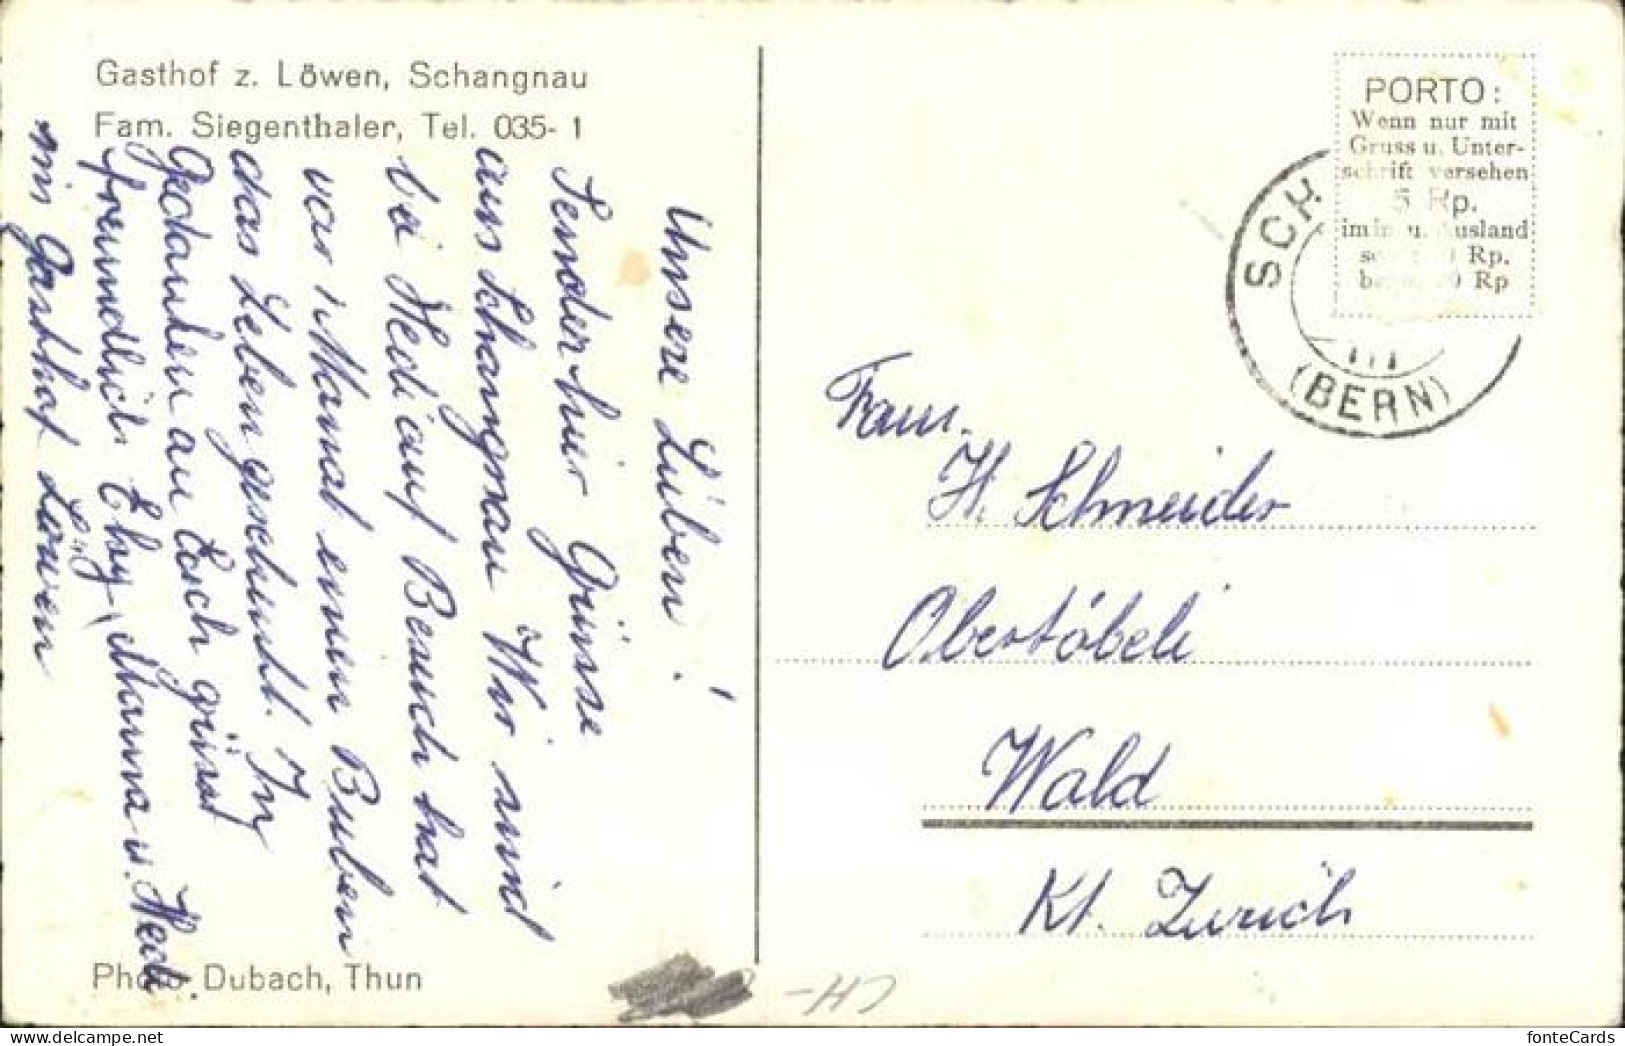 Gasthof z. Löwen, Schangnau
Fam. Siegenthaler, Tel. 035-1
Unsere Lieben!
Senden hier Grüsse
aus Schangnau. Wir sind
bei Hedi auf Besuch hat
vor 1 Monat einen Buben
das Leben geschenkt. In
Gedanken an Euch grüsst
freundlich Elsy, Mama u. Hedi
im Gasthof Löwen
Photo Dubach, Thun
PORTO:
Wenn nur mit
Gruss u. Unter-
schrift versehen
5 Rp.
im in u. Ausland
Rp.
Rp
SCH
(BERN)
Fam.
H. Schneider
Obertöbeli
Wald
Kt. Zürich
CH-
fonteCards